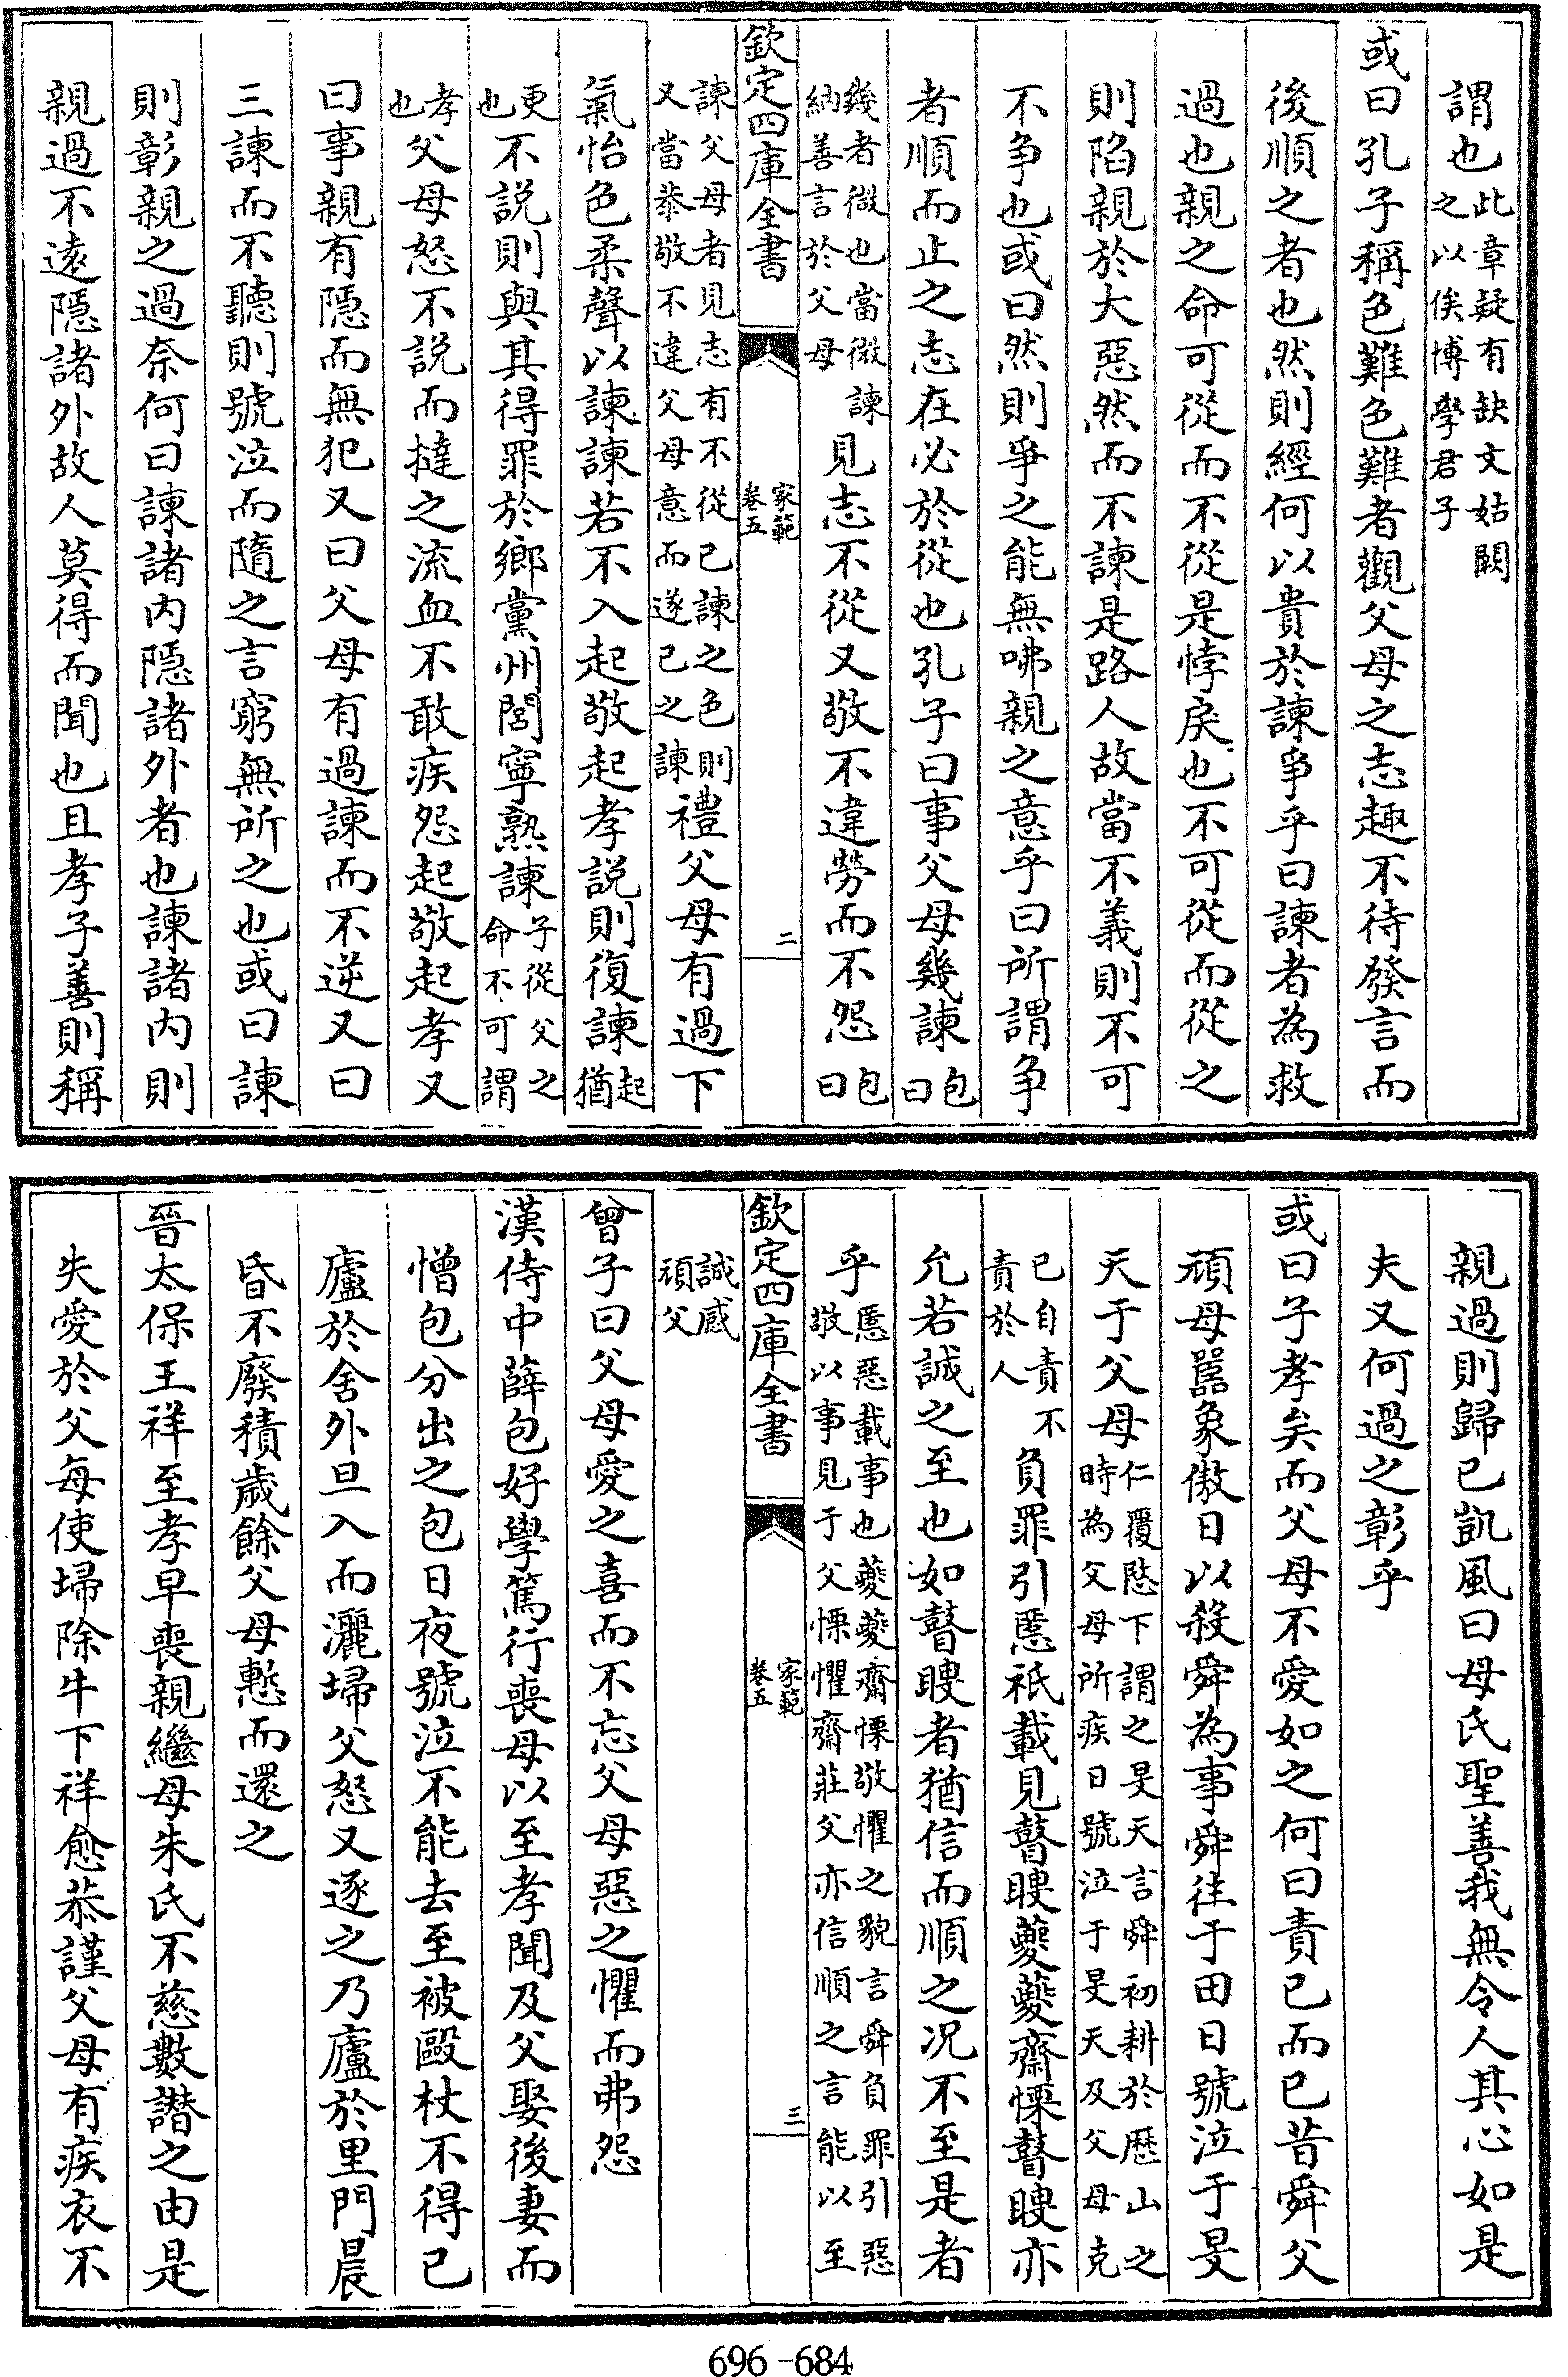 謂也此章疑有缺文姑闕之以俟博學君子
或曰孔子稱色難色難者觀父母之志趣不待發言而
後順之者也然則經何以貴於諫爭乎曰諫者為救
過也親之命可從而不從是悖戾也不可從而從之
則陷親於大惡然而不諫是路人故當不義則不可
不爭也或曰然則爭之能無咈親之意乎曰所謂爭
者順而止之志在必於從也孔子曰事父母幾諫包曰
幾者微也當微諫納善言於父母見志不從又敬不違勞而不怨包曰
欽定四庫全書 家範卷五 二
諫父母者見志有不從已諫之色則又當恭敬不違父母意而遂已之諫禮父母有過下
氣怡色柔聲以諫諫若不入起敬起孝說則復諫起猶
更也不說則與其得罪於鄉黨州閭寧熟諫子從父之命不可謂
孝也父母怒不說而撻之流血不敢疾怨起敬起孝又
曰事親有隱而無犯又曰父母有過諫而不逆又曰
三諫而不聽則號泣而隨之言窮無所之也或曰諫
則彰親之過奈何曰諫諸內隱諸外者也諫諸內則
親過不遠隱諸外故人莫得而聞也且孝子善則稱
親過則歸已凱風曰母氏聖善我無令人其心如是
夫又何過之彰乎
或曰子孝矣而父母不愛如之何曰責已而已昔舜父
頑母嚚象傲日以殺舜為事舜往于田日號泣于旻
天于父母仁覆愍下謂之旻天言舜初耕於歷山之時為父母所疾日號泣于旻天及父母克
已自責不責於人負罪引慝祇載見瞽瞍夔夔齋慄瞽瞍亦
允若誠之至也如瞽瞍者猶信而順之況不至是者
乎慝惡載事也夔夔齋慄敬懼之貌言舜負罪引惡敬以事見于父慄懼齋莊父亦信順之言能以至
欽定四庫全書 家範卷五 三
誠感頑父
曾子曰父母愛之喜而不忘父母惡之懼而弗怨
漢侍中薛包好學篤行喪母以至孝聞及父娶後妻而
憎包分出之包日夜號泣不能去至被毆杖不得已
廬於舍外旦入而灑埽父怒又逐之乃廬於里門晨
昏不廢積歲餘父母慙而還之
晉太保王祥至孝早喪親繼母朱氏不慈數譖之由是
失愛於父每使埽除牛下祥愈恭謹父母有疾衣不
696-684